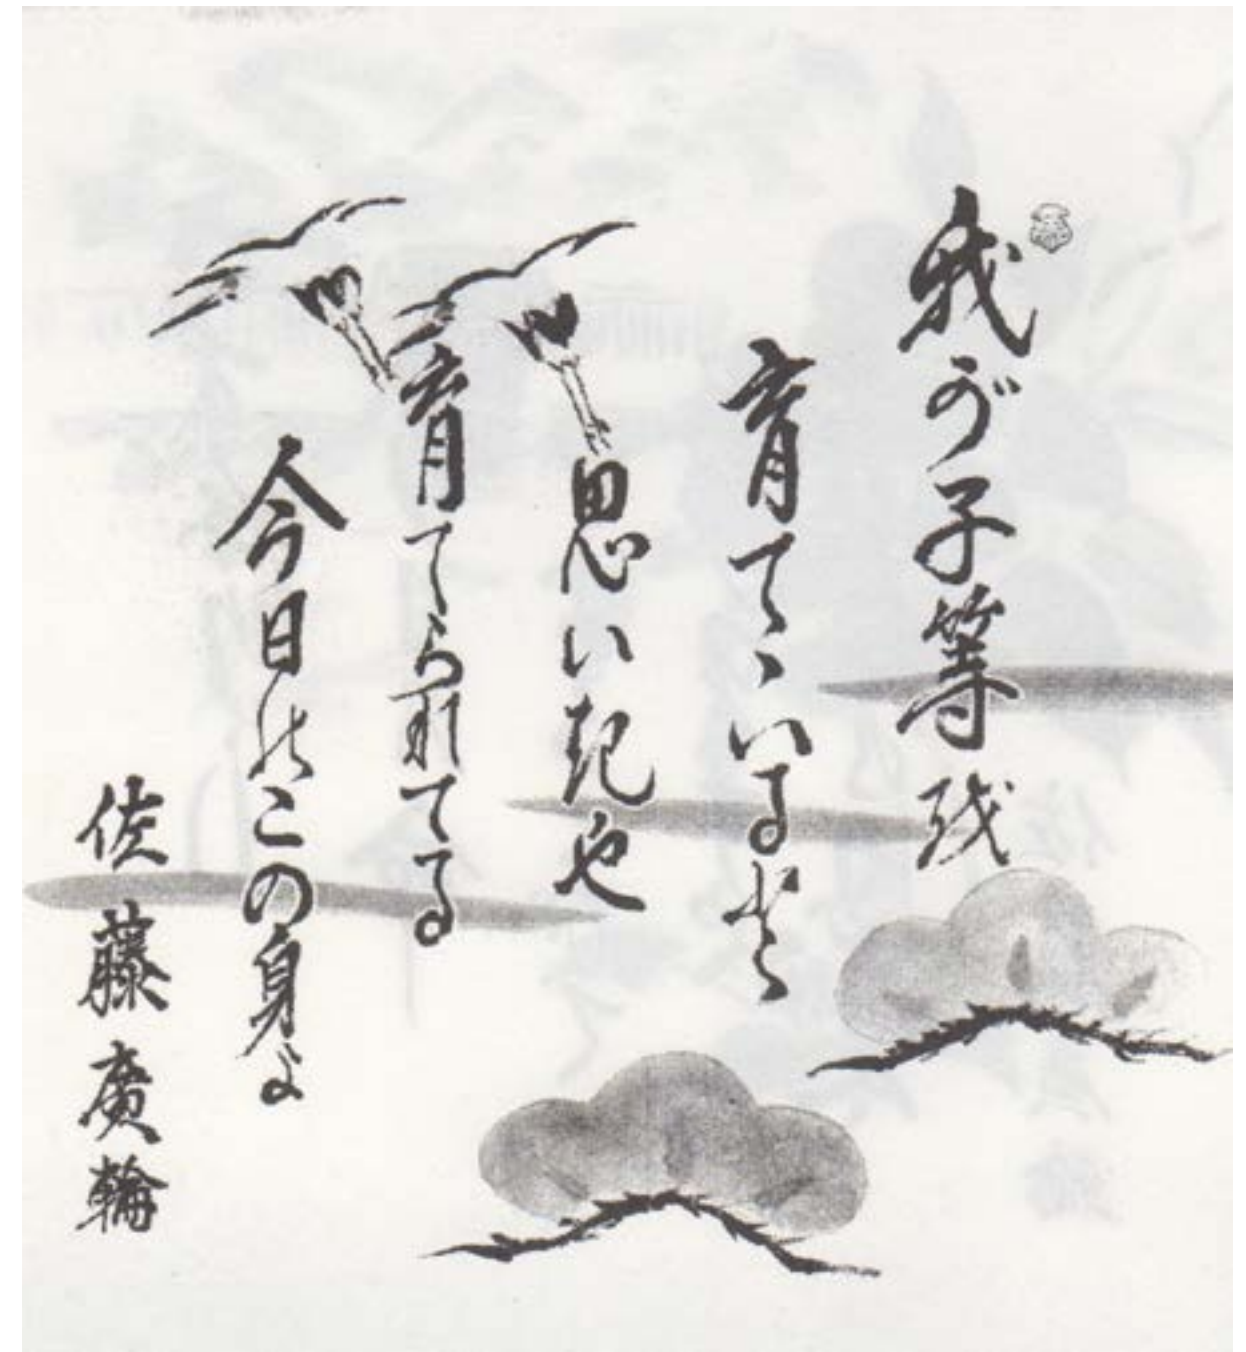 我が子等越
育てゝいると
思い起や
育てら禮てる
今日能この身よ
佐藤廣輪